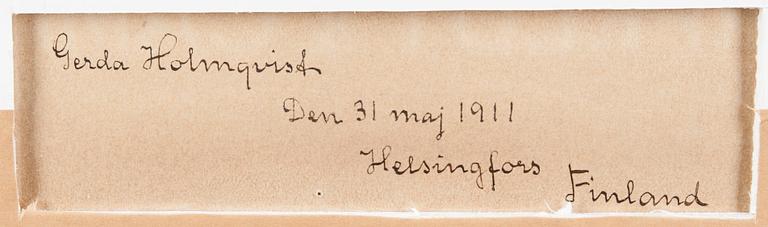 Gerda Holmqvist
Den 31 maj 1911
Helsingfors
Finland